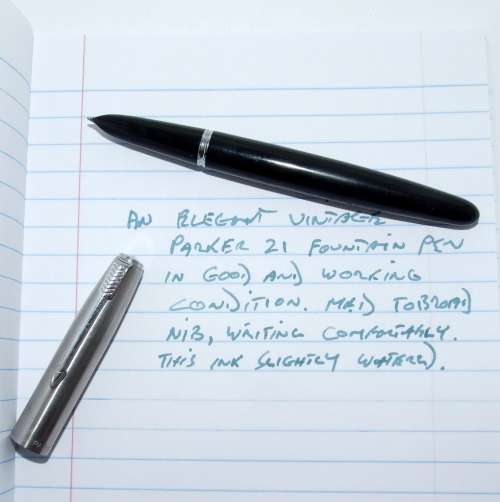 AN ELEGANT VINTAGE
PARKER 21 FOUNTAIN PEN
IN GOOD AND WORKING
CONDITION. MED TO BROAD
NIB, WRITING COMFORTABLY.
THIS INK SLIGHTLY WATERED.